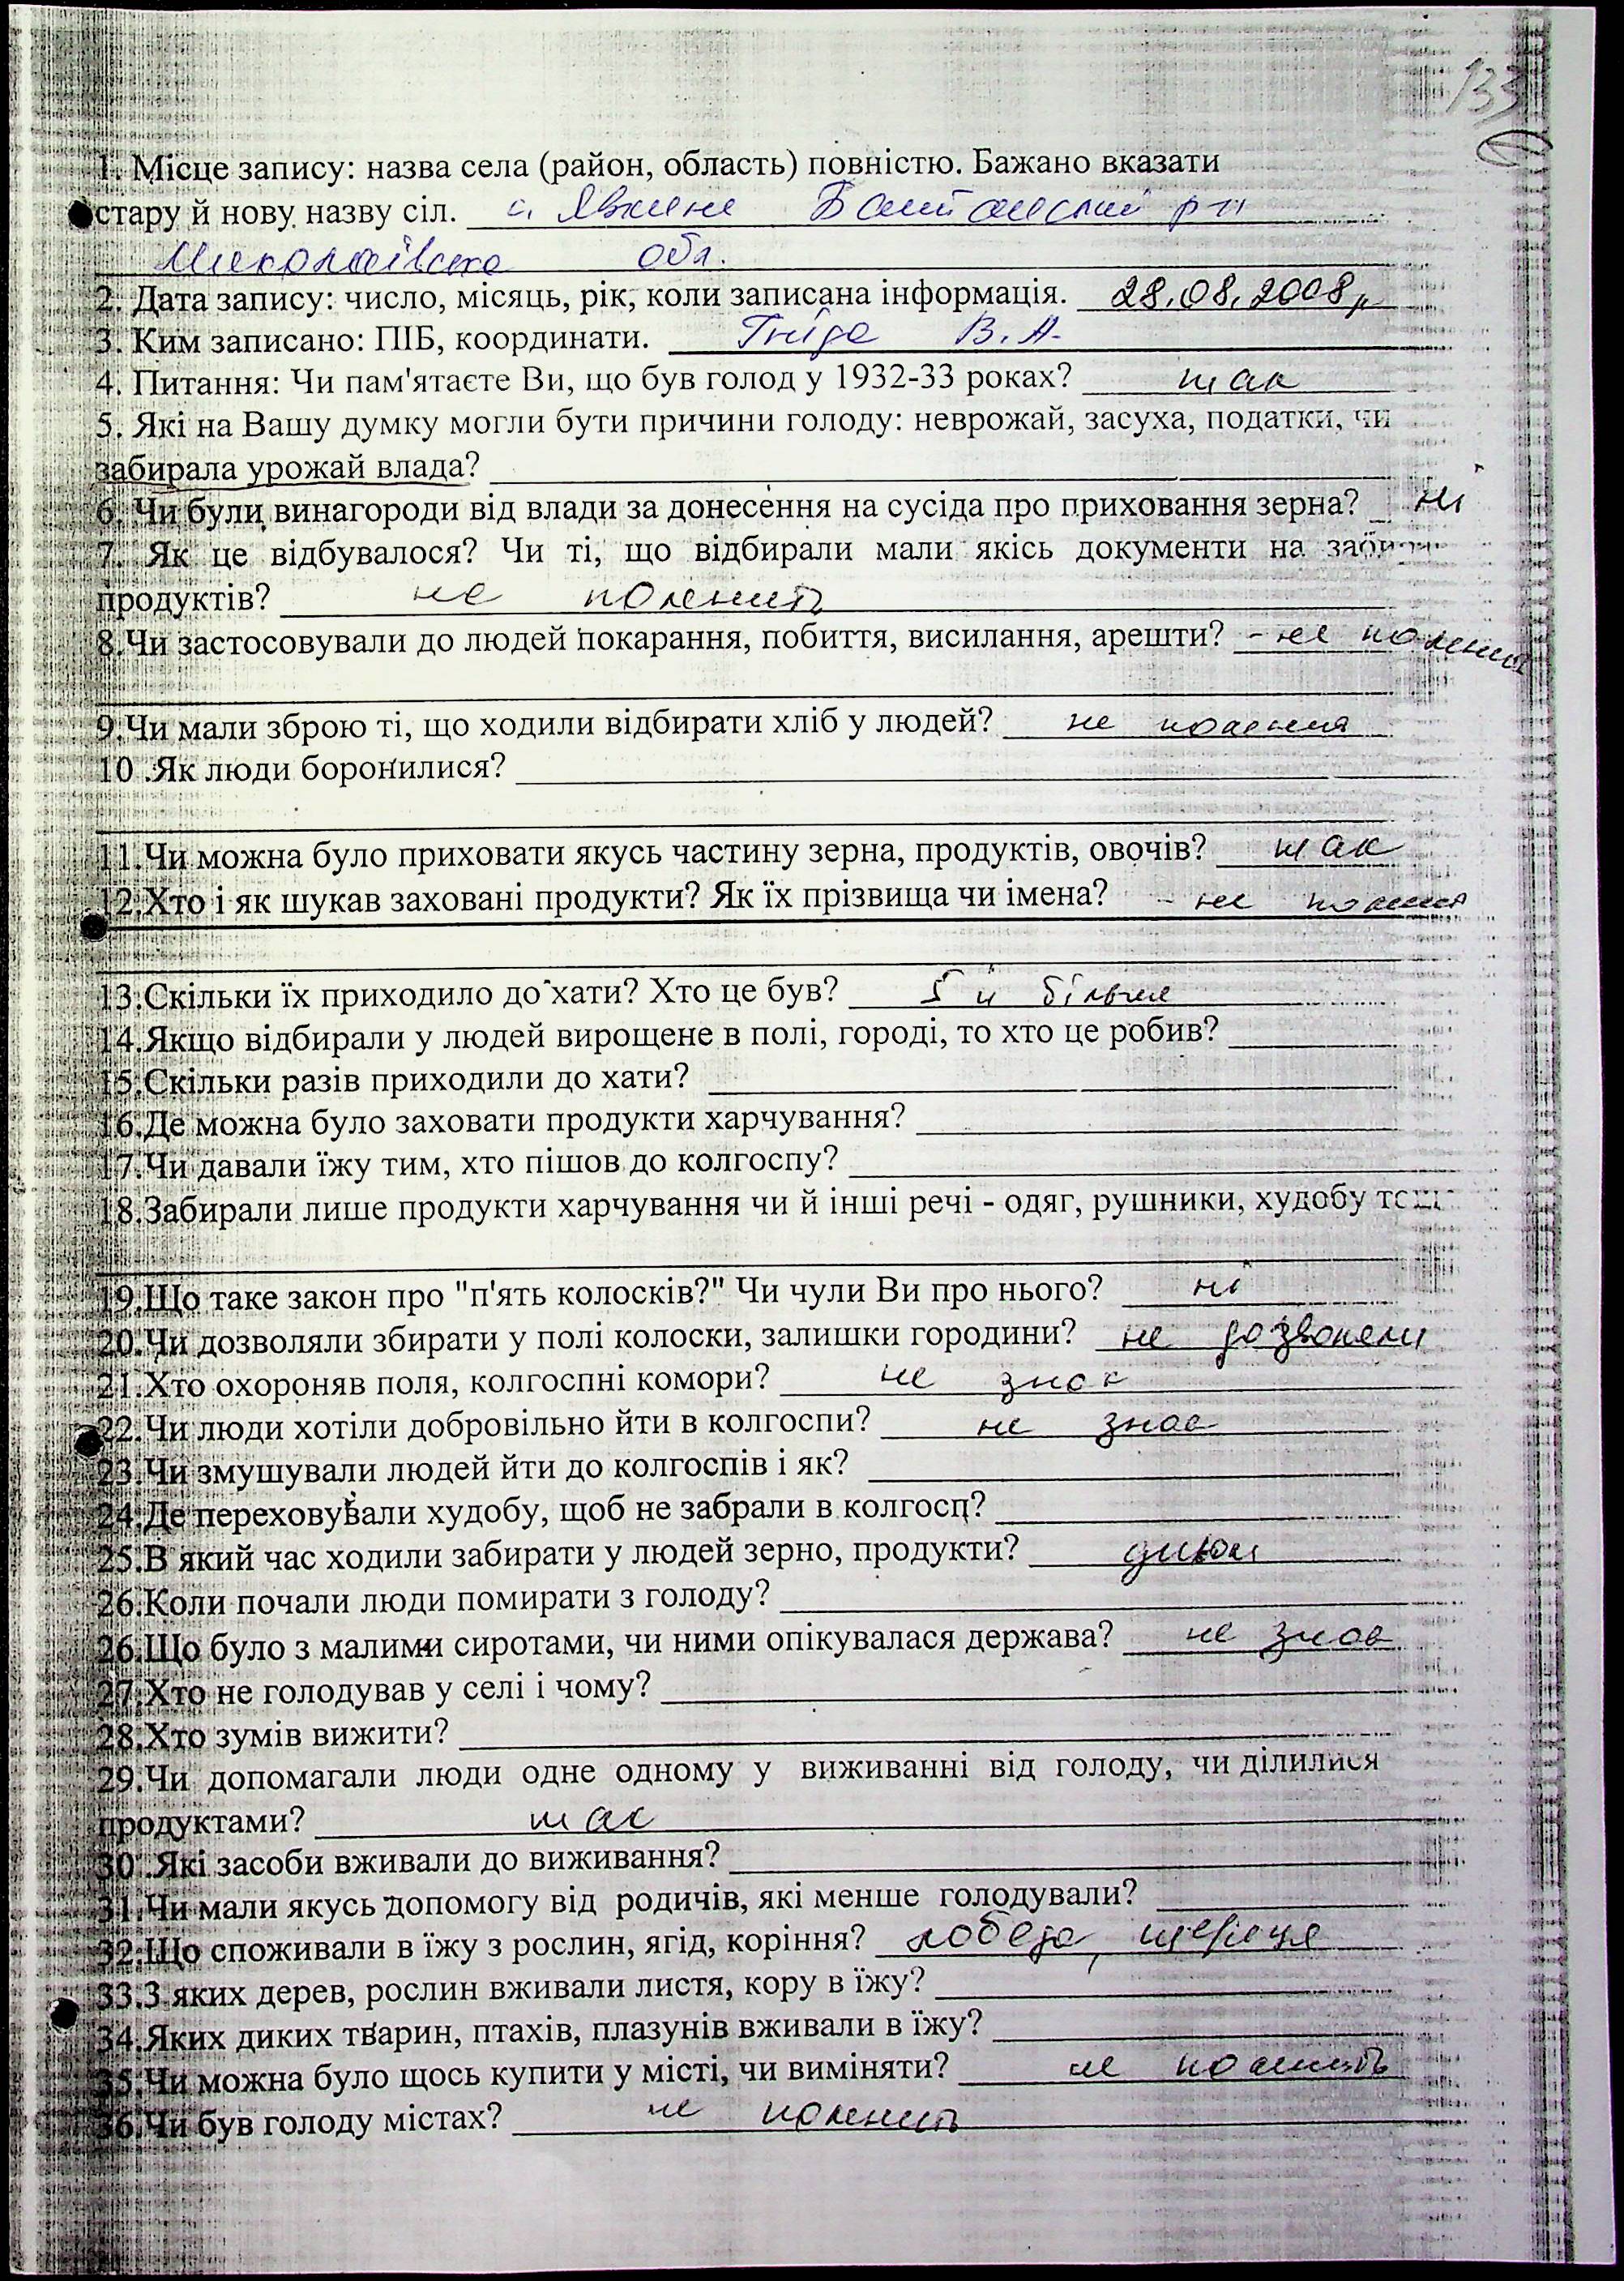 133
1. Місце запису: назва села (район, область) повністю. Бажано вказати
стару й нову назву сіл. с. Явкине Баштанський р-н
Миколаївська обл.
2. Дата запису: число, місяць, рік, коли записана інформація. 28.08.2008р
3. Ким записано: ПІБ, координати. Гніда В.А.
4. Питання: Чи пам'ятаєте Ви, що був голод у 1932-33 роках? так
5. Які на Вашу думку могли бути причини голоду: неврожай, засуха, податки, чи
забирала урожай влада?
6. Чи були винагороди від влади за донесення на сусіда про приховання зерна? ні
7. Як це відбувалося? Чи ті, що відбирали мали якісь документи на
продуктів? не помнить
8.Чи застосовували до людей покарання, побиття, висилання, арешти? - не помнит
9.Чи мали зброю ті, що ходили відбирати хліб у людей? не помнит
10 .Як люди боронилися?
11.Чи можна було приховати якусь частину зерна, продуктів, овочів? так
12.Хто і як шукав заховані продукти? Як їх прізвища чи імена? - не помнит
13.Скільки їх приходило до хати? Хто це був? 5 й більше
14.Якщо відбирали у людей вирощене в полі, городі, то хто це робив?
15.Скільки разів приходили до хати?
16.Де можна було заховати продукти харчування?
17.Чи давали їжу тим, хто пішов до колгоспу?
18.Забирали лише продукти харчування чи й інші речі - одяг, рушники, худобу
19.Що таке закон про "п'ять колосків?" Чи чули Ви про нього? ні
20.Чи дозволяли збирати у полі колоски, залишки городини? не дозволяли
21.Хто охороняв поля, колгоспні комори? не знає
22.Чи люди хотіли добровільно йти в колгоспи? не знає
23.Чи змушували людей йти до колгоспів і як?
24.Де переховували худобу, щоб не забрали в колгосп?
25.В який час ходили забирати у людей зерно, продукти? дньом
26.Коли почали люди помирати з голоду?
26.Що було з малими сиротами, чи ними опікувалася держава? не знає
27.Хто не голодував у селі і чому?
28.Хто зумів вижити?
29.Чи допомагали люди одне одному у виживанні від голоду, чи ділилися
продуктами? так
30 .Які засоби вживали до виживання?
31.Чи мали якусь допомогу від родичів, які менше голодували?
32.Що споживали в їжу з рослин, ягід, коріння? лобода, щериця
33.З яких дерев, рослин вживали листя, кору в їжу?
34.Яких диких тварин, птахів, плазунів вживали в їжу?
35.Чи можна було щось купити у місті, чи виміняти? не помнить
36.Чи був голоду містах? не помнить